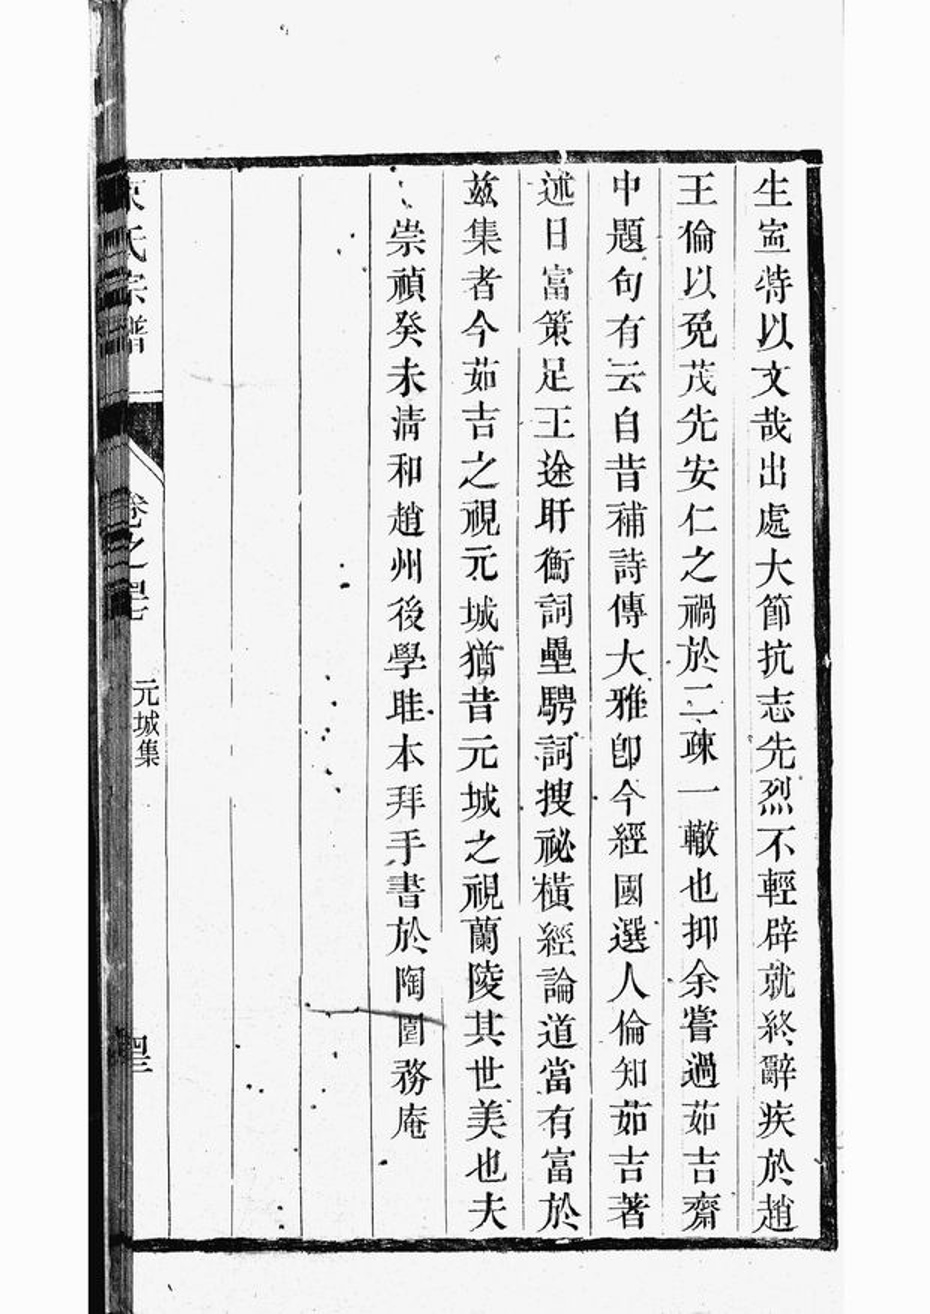 生寍特以文哉出處大節抗志先烈不輕辟就終辭疾於趙
王倫以免茂先安仁之禍於二疎一轍也抑余嘗過茹吉齋
中題句有云自昔補詩傳大雅卽今經國選人倫知茹吉著
述日富策足王途盱衡詞壘騁詞搜祕橫經論道當有富於
茲集者今茹吉之視元城猶昔元城之視蘭陵其世美也夫
崇禎癸未淸和趙州後學眭本拜手書於陶園務庵
氏宗譜
卷之
元城集